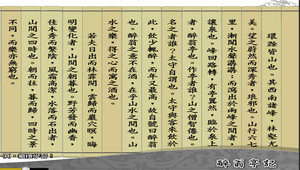 環滁皆山也。其西南諸峰,林壑尤
美。望之蔚然而深秀者,瑯琊也。山行六七
里,漸聞水聲潺潺,而瀉出於兩峰之間者,
讓泉也。峰回路轉,有亭翼然,臨於泉上
者,醉翁亭也。作亭者誰?山之僧智僊也。
名之者誰?太守自謂也。太守與客來飲於
此,飲少輒醉,而年又最高,故自號曰醉翁
也。醉翁之意不在酒,在乎山水之間也。山
水之樂,得之心而寓之酒也。
若夫日出而林霏開,雲歸而巖穴暝,晦
明變化者,山間之朝暮也。野芳發而幽香,
佳木秀而繁陰,風霜高潔,水落而石出者,
山間之四時也。朝而往,暮而歸,四時之景
不同,而樂亦無窮也。
醉翁亭記